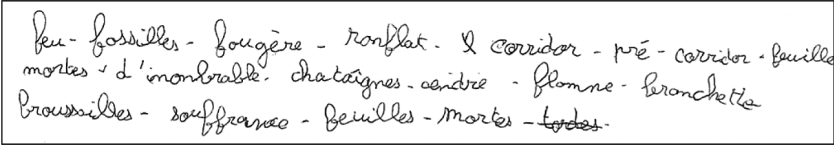 feu - fossilles - fougère - ronflat - & corridor - pré - corridor - feuille
mortes - d'inombrable - chataîgnes - cendrie - flamne - bronchette
broussailles - souffrance - feuilles - mortes - tordes -